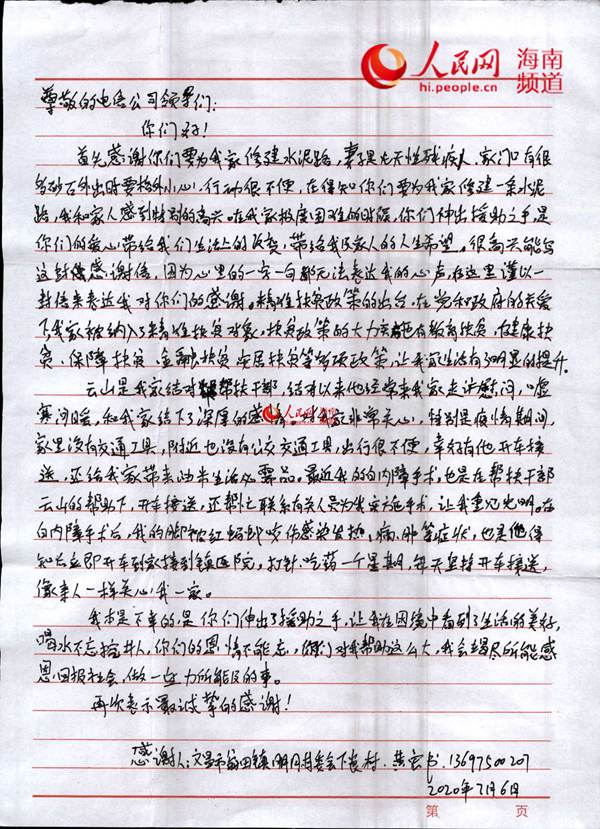 人民网 海南频道
hi.people.cn
尊敬的电信公司领导们:
你们好!
首先感谢你们要为我家修建水泥路,妻子是先天性残疾人,家门口有很
多砂石外出时要格外小心,行动很不便,在得知你们要为我家修建一条水泥
路,我和家人感到特别的高兴,在我家极度困难的时候,你们伸出援助之手,是
你们的爱心,带给我们生活上的改变,带给我及家人的人生希望。很高兴能写
这封感谢信,因为心里的一字一句都无法表达我的心声,在这里谨以一
封信来表达我对你们的感谢。精准扶贫政策的出台,在党和政府的关爱
下我家被纳入了精准扶贫对象,扶贫政策的大力实施在教育扶贫、健康扶
贫、保障扶贫、金融扶贫、安居扶贫等多项政策,让我家生活有了明显的提升。
云山是我家结对帮扶干部,结对以来他经常来我家走访慰问,嘘
寒问暖,和我家结下了深厚的感情。对我家非常关心,特别是疫情期间,
家里没有交通工具,附近也没有公交交通工具,出行很不便,幸好有他开车接
送,还给我家带来油米生活必需品。最近我的白内障手术,也是在帮扶干部
云山的帮助下,开车接送,还帮忙联系有关人员为我实施手术,让我重见光明。在
白内障手术后,我的脚被红蚂蚁咬伤感染发热、病、肿等症状,也是他得
知后立即开车到家接到镇医院,打针吃药一个星期,每天坚持开车接送,
像亲人一样关心我一家。
我本是不幸的,是你们伸出了援助之手,让我在困境中看到了生活的美好,
喝水不忘挖井人,你们的恩情不能忘,你们对我帮助这么大,我会竭尽所能感
恩回报社会,做一些力所能及的事。
再次表示最诚挚的感谢!
感谢人:文昌市翁田镇明月村委会下良村.黄 书.13697500207
2020年7月6日
第 页
人民网